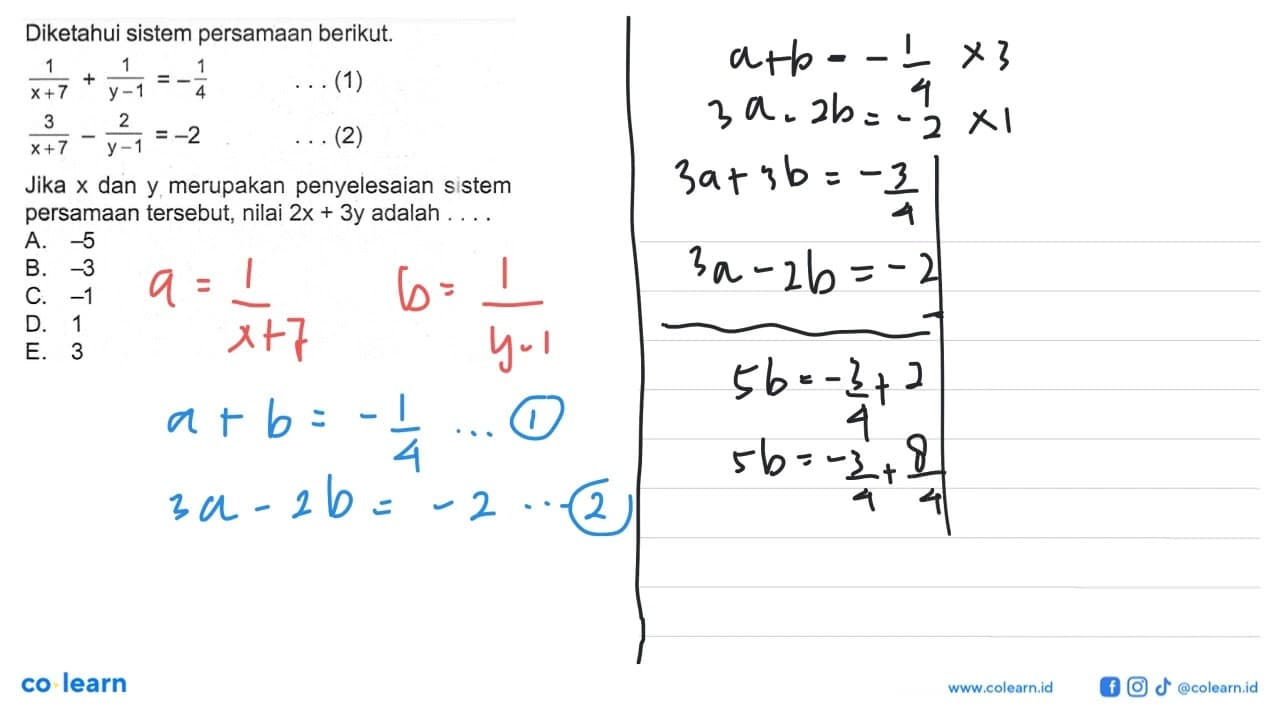 Diketahui sistem persamaan berikut.
1/(x+7) + 1/(y-1) = -1/4 ...(1)
3/(x+7) - 2/(y-1) = -2 ...(2)
Jika x dan y merupakan penyelesaian sistem
persamaan tersebut, nilai 2x + 3y adalah ....
A. -5
B. -3
C. -1
D. 1
E. 3
a = 1/(x+7) b = 1/(y-1)
a + b = -1/4 ... ①
3a - 2b = -2 ... ②
a+b = -1/4 ×3
3a - 2b = -2 ×1
3a + 3b = -3/4
3a - 2b = -2
-
5b = -3/4 + 2
5b = -3/4 + 8/4
co learn
www.colearn.id
@colearn.id